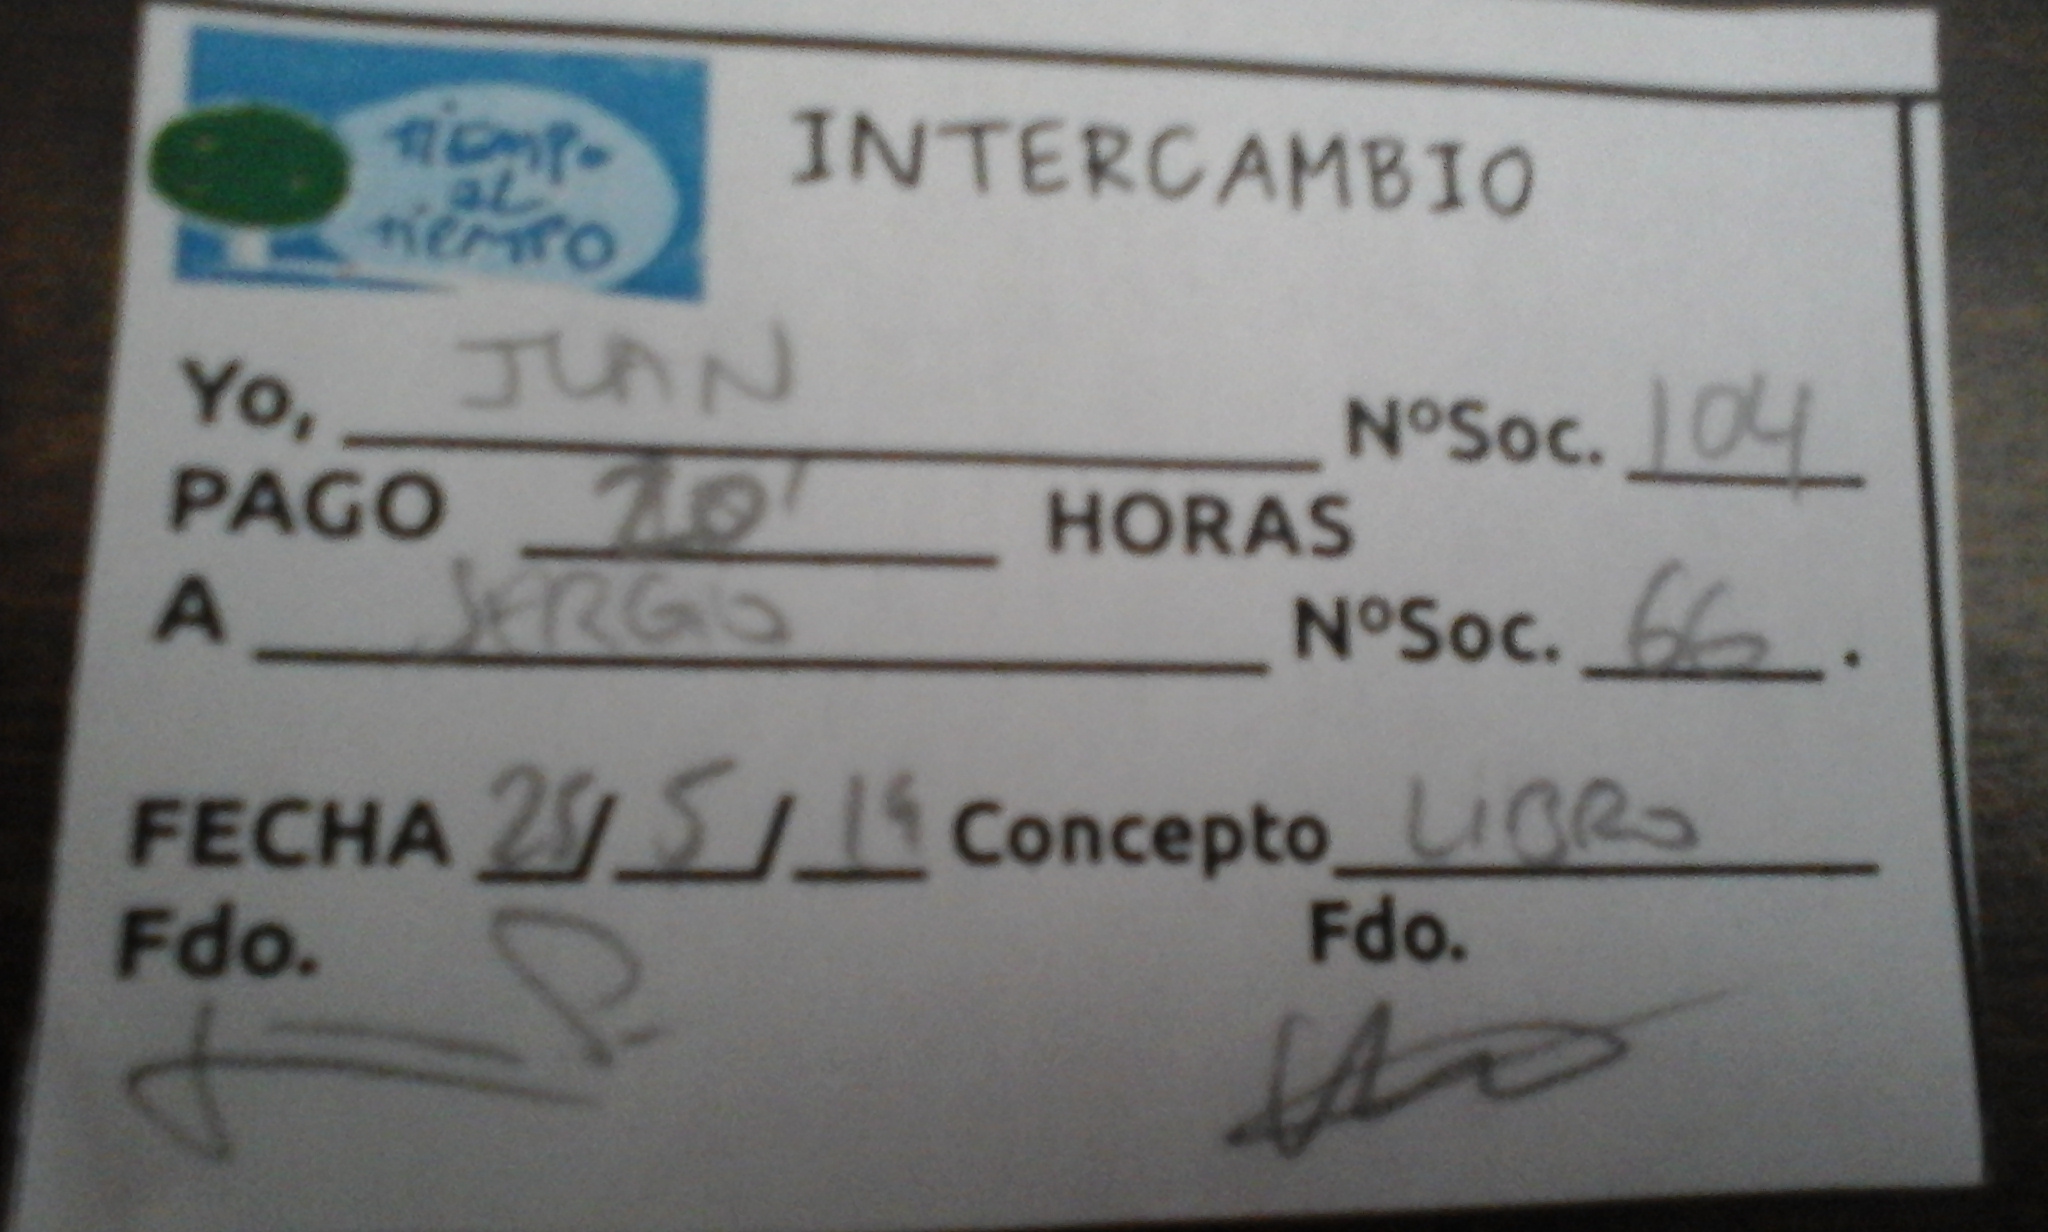 Tiempo
al
tiempo
INTERCAMBIO
Yo, JUAN NºSoc. 104
PAGO 20' HORAS
A SERGIO NºSoc. 66.
FECHA / 5 / Concepto LIBRO
Fdo. Fdo.